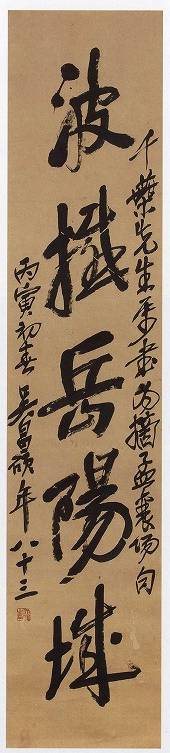 波撼岳陽城
千葉先生屬書為摘孟襄陽句
丙寅初春吳昌碩年八十三